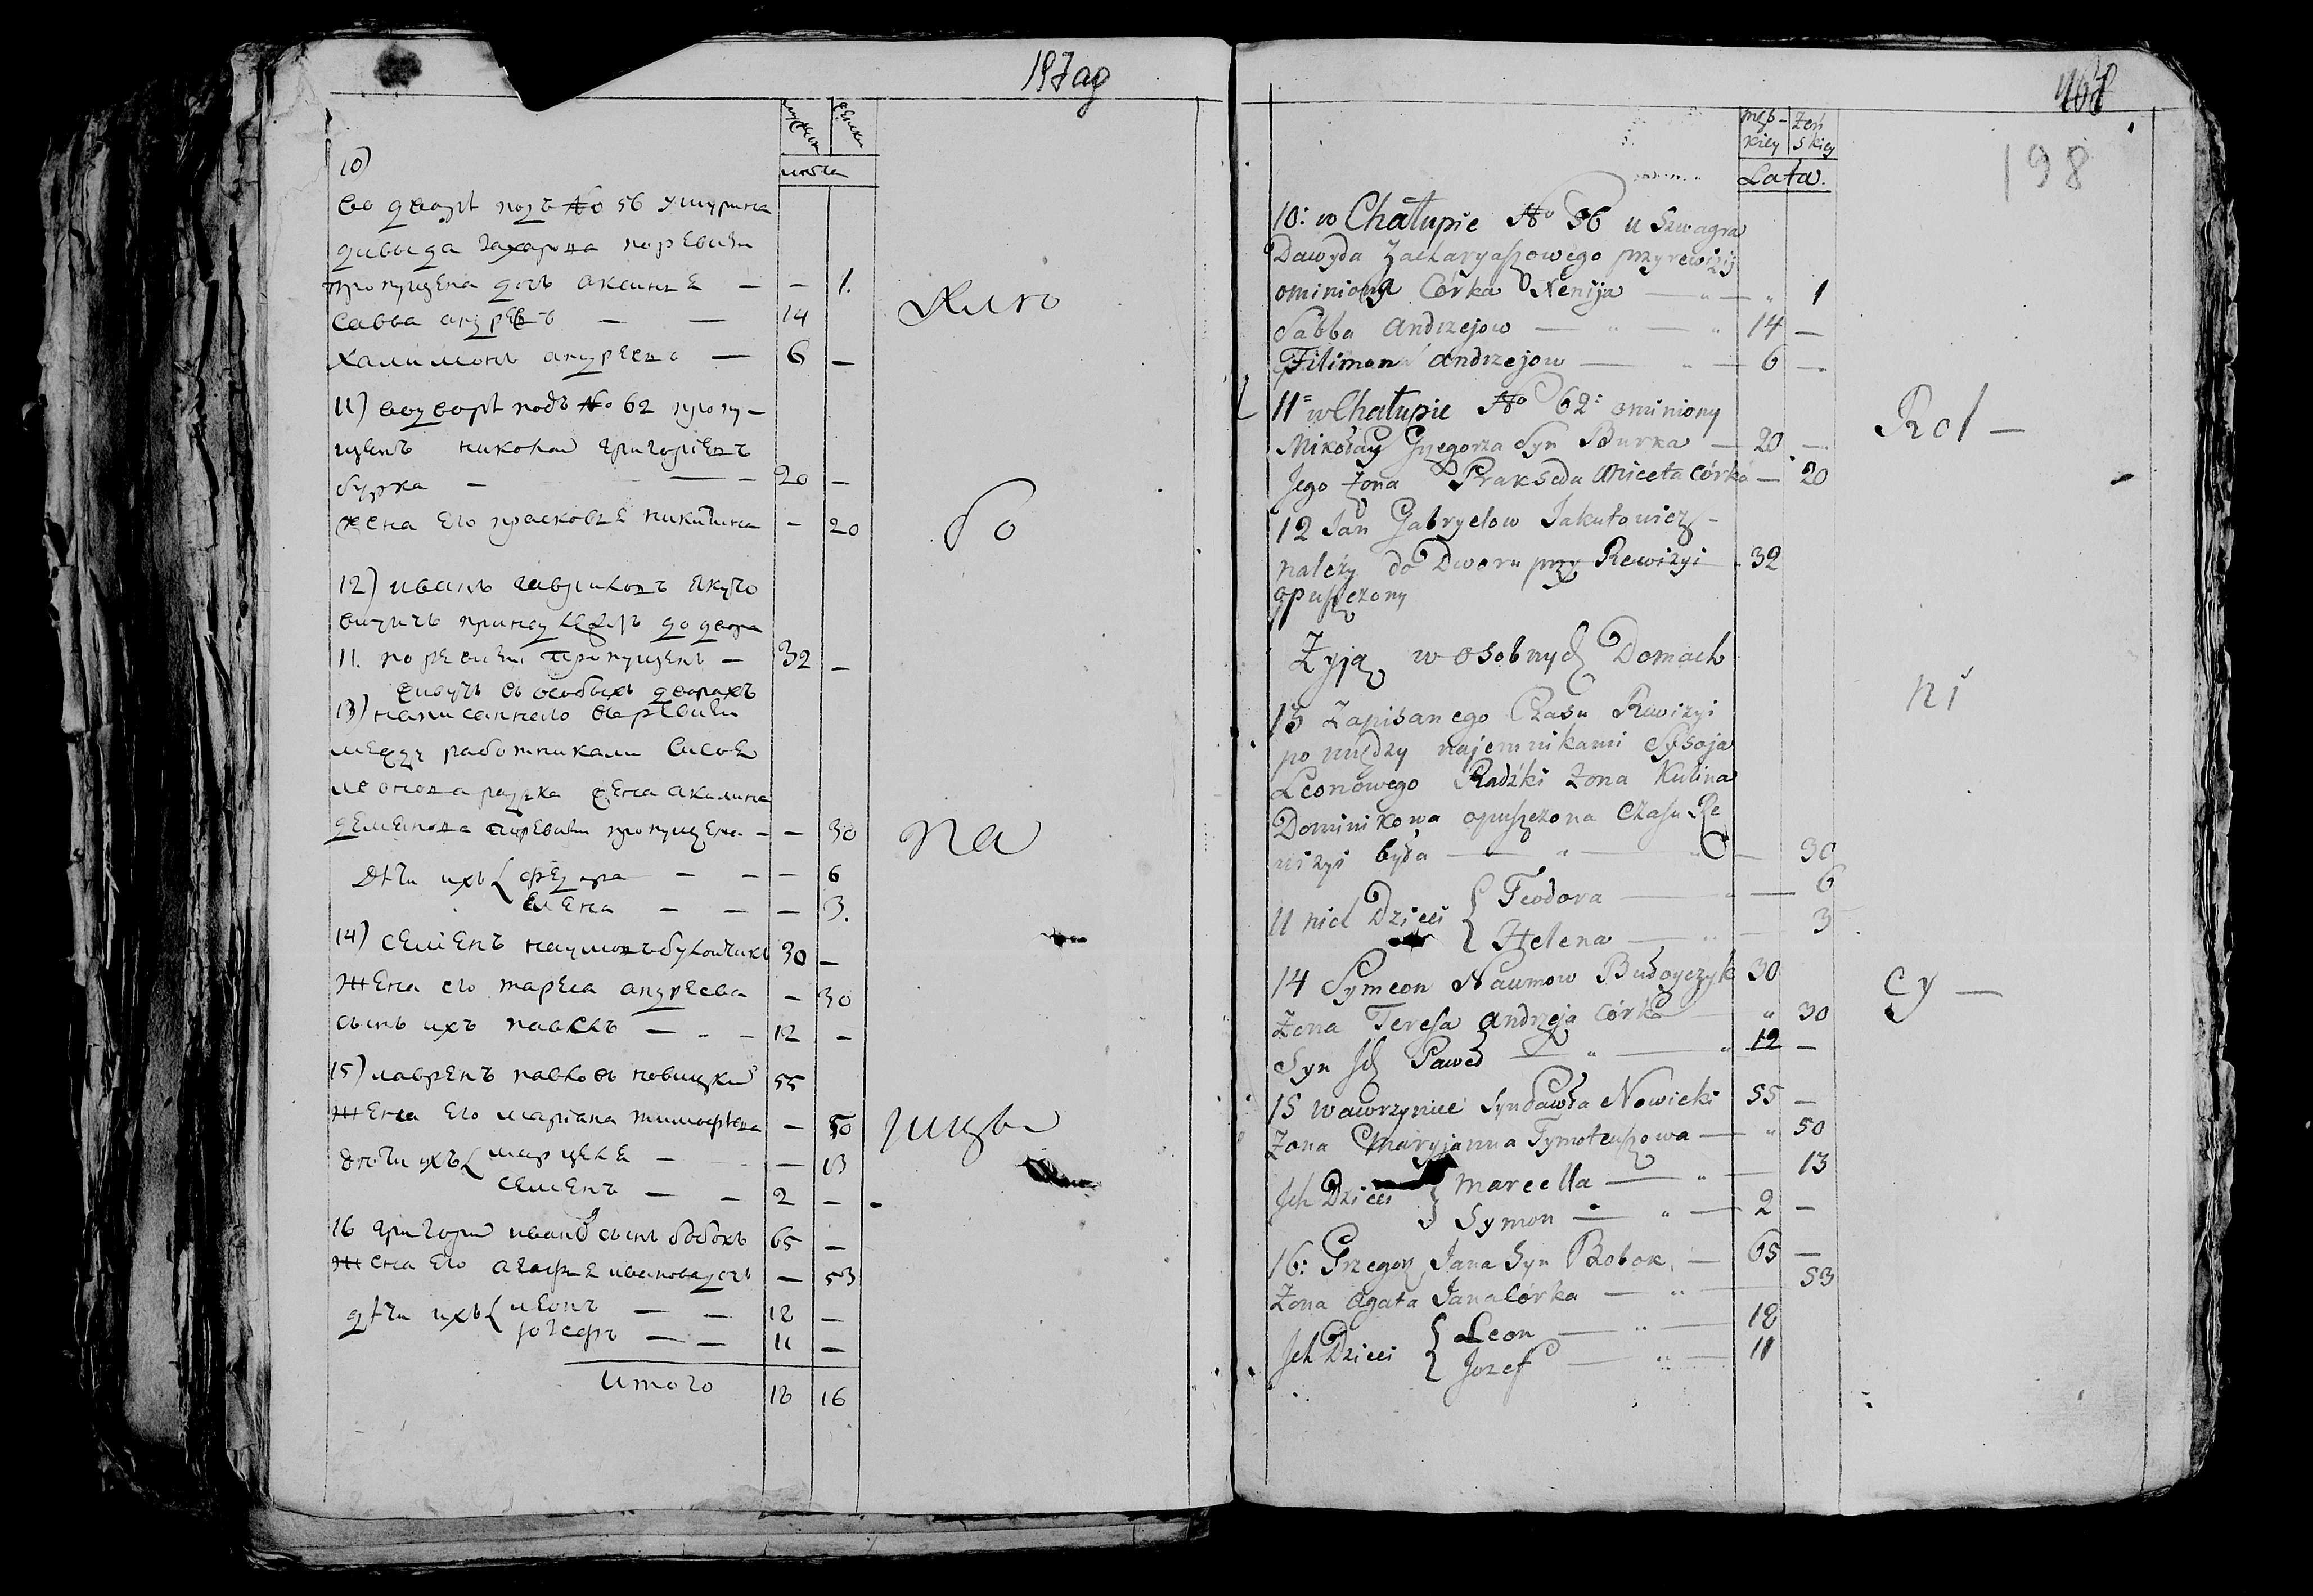 197ag
мужеска
женска
лѣта
10)
во дворѣ подъ № 56 у шурина
давыда захарова поревизи
пропущена дочь аксинье — — 1.
савва андреевъ — — 14
халимонъ андреевъ — 6 —
хлѣ
11) во дворѣ подъ № 62 пропу-
щенъ николай григорiевъ
бурка — — 20 —
жена его прасковье никитина — 20
бо
12) иванъ гавриловъ якуто
вичичъ принадлежитъ до двора
11. по ревизи пропущенъ — 32 —
живутъ въ особыхъ дворахъ
13) написаннаго варевизи
между работниками сисое
леонова радзка жена акилина
демянова поревизи пропущена — — 30
па
дѣти ихъ { федора — — — 6
елена — — — 3.
14) семенъ наумовъ булойчикъ 30 —
жена его тареса андреева — 30
сынъ ихъ павелъ — - — 12 —
15) лавренъ павловъ новицкий 55
жена его марiана тимофѣева — 50
шцы
дѣти ихъ { марцеле — — 13
семенъ — — 2 —
16 григори иван сынъ бобокъ 65 —
жена его агафье иванова дочь — 53
дѣти ихъ { леонъ — — 18 —
юзефъ — — 11 —
итого 18 16
468
198
męs-kiey
żeń skiey
Lata.
10: w Chałupie No 56 u Szwagra
Dawyda Zacharyaszowego przy rewizij
ominiona Córka Xenija — " — " 1
Sabba Andrzejow — " — " 14 —
Filimon Andrzejow — " — 6 —
11 = w Chałupie No 62: ominiony
Rol —
Mikołay Grzegorza Syn Burka — 20 —
Jego Żona Prakseda Aniceta Córka — 20
12 Jan Gabryelow Jakutowicz -
należy do Dworu przy Rewizyi - 32
opuszczony
Żyją w osobnych Domach
ni
13 Zapisanego Czasu Rewizyi
pomiędzy najemnikami Sysoja
Leonowego Radzki Żona Kulina
Dominikowa opuszczona Czasu Re
wizyi była — " — " — 30
U nich Dzieci { Teodora — — 6
Helena — " — 3
14 Symeon Naumow Budoyczyk 30
cy —
Żona Teresa Andrzeja Córka — " 30
Syn Ich Paweł — " — " 12 —
15 Wawrzyniec Syn Pawła Nowicki 55 —
Żona Maryjanna Tymoteuszowa — " 50
Ich Dzieci { Marcella — " — 13
Symon — " — 2 —
16: Grzegorz Jana Syn Bobok — 65 —
Żona Agata Jana Córka — " — 53
Ich Dzieci { Leon — " — 18
Jozef — " — 11